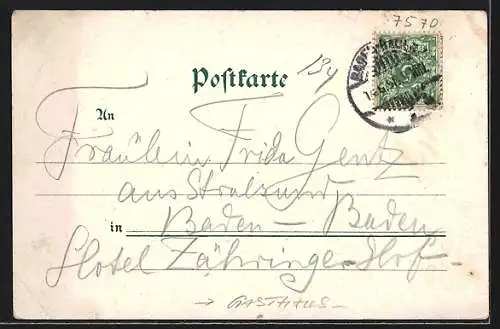 7570
134
Postkarte
An
Fräulein Frida Gentz
aus Stralsund
in Baden-Baden
Hotel Zähringer-Hof-
→ GASTHAUS-